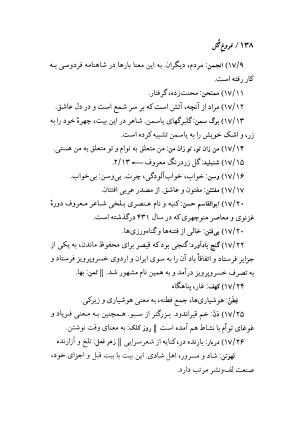 ۱۳۸ / فروغ گل
۱۷/۹) انجمن: مردم، دیگران. به این معنا بارها در شاهنامه فردوسی به
کار رفته است.
۱۷/۱۱) ممتحن: محنت‌زده، گرفتار.
۱۷/۱۲) مراد از آنچه، آتش است که بر سر شمع است و در دل عاشق.
۱۷/۱۳) برگ سمن: گلبرگهای یاسمن. شاعر در این بیت، چهرهٔ خود را به
زر، و اشک خویش را به یاسمن تشبیه کرده است.
۱۷/۱۴) من زان تو، تو زان من: من متعلق به توام و تو متعلق به من هستی.
۱۷/۱۵) شنبلید: گل زردرنگ معروف ← ۲/۱۳.
۱۷/۱۶) وسن: خواب، خواب‌آلودگی، چرت. بی‌وسن: بی‌خواب.
۱۷/۱۷) مفتتن: مفتون و عاشق. از مصدر عربی افتتان.
۱۷/۲۰) ابوالقاسم حسن: کنیه و نام عنصری بلخی شاعر معروف دورهٔ
غزنوی و معاصر منوچهری که در سال ۴۳۱ درگذشته است.
۱۷/۲۰) بی‌فتن: خالی از فتنه‌ها و گناه‌ورزی‌ها.
۱۷/۲۲) گنج بادآورد: گنجی بود که قیصر برای محفوظ ماندن، به یکی از
جزایر فرستاد و اتفاقاً باد آن را به سوی ایران و اردوی خسروپرویز فرستاد و
به تصرف خسروپرویز درآمد و به همین نام مشهور شد. || ثمن: بها.
۱۷/۲۴) کهف: غار، پناهگاه
فِطَن: هوشیاری‌ها، جمع فطنه، به معنی هوشیاری و زیرکی.
۱۷/۲۵) دَنْ: خم قیراندود. بزرگتر از سبو. همچنین به معنی فریاد و
غوغای توأم با نشاط هم آمده است || روز کلک: به معنای وقت نوشتن.
۱۷/۲۶) دربار: بارنده در، کنایه از شعرسرایی || زهر فعل: تلخ و آزارنده
لهوتن: شاد و مسرور، اهل شادی. این بیت با بیت قبل و اجزای خود،
صنعت لف‌ونشر مرتب دارد.